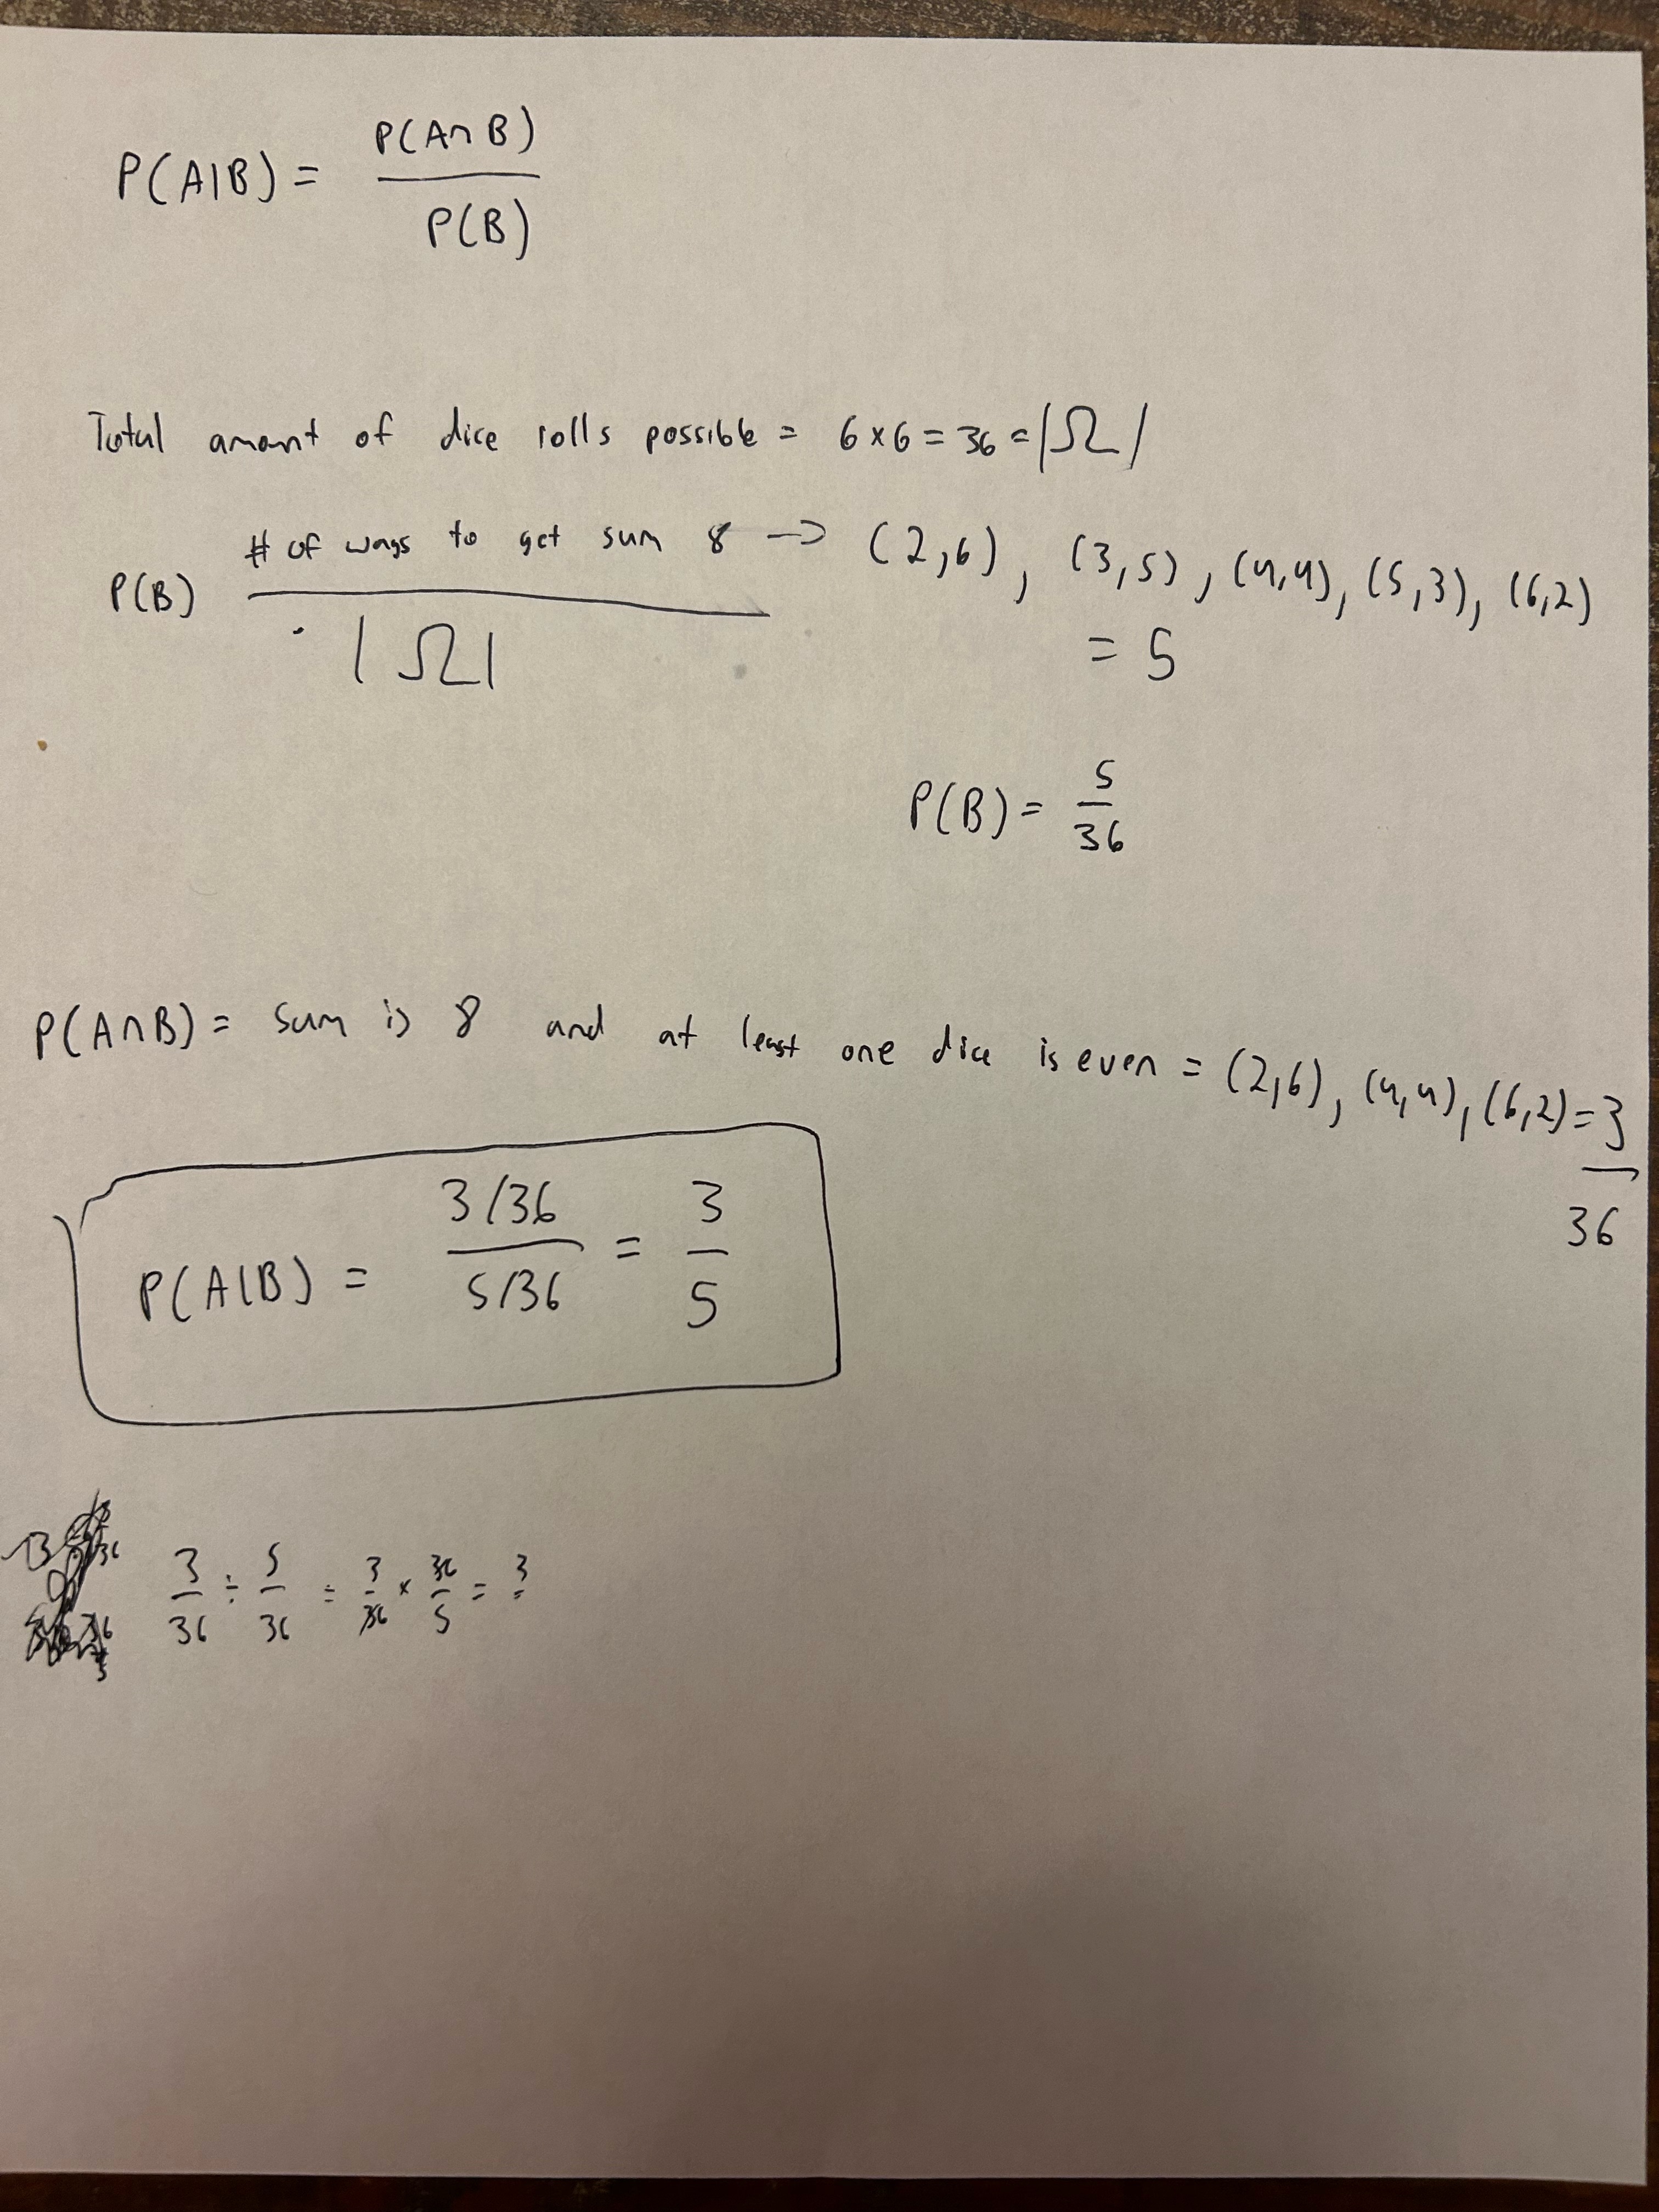 P(A|B) = P(A∩B)
P(B)
Total amount of dice rolls possible = 6×6 = 36 = |Ω|
# of ways to get sum 8 → (2,6), (3,5), (4,4), (5,3), (6,2)
P(B)
|Ω|
= 5
P(B) = 5
36
P(A∩B) = sum is 8 and at least one dice is even = (2,6), (4,4), (6,2) = 3
36
P(A|B) = 3/36 = 3
5/36 5
3 ÷ 5 = 3 × 36 = 3
36 36 36 5